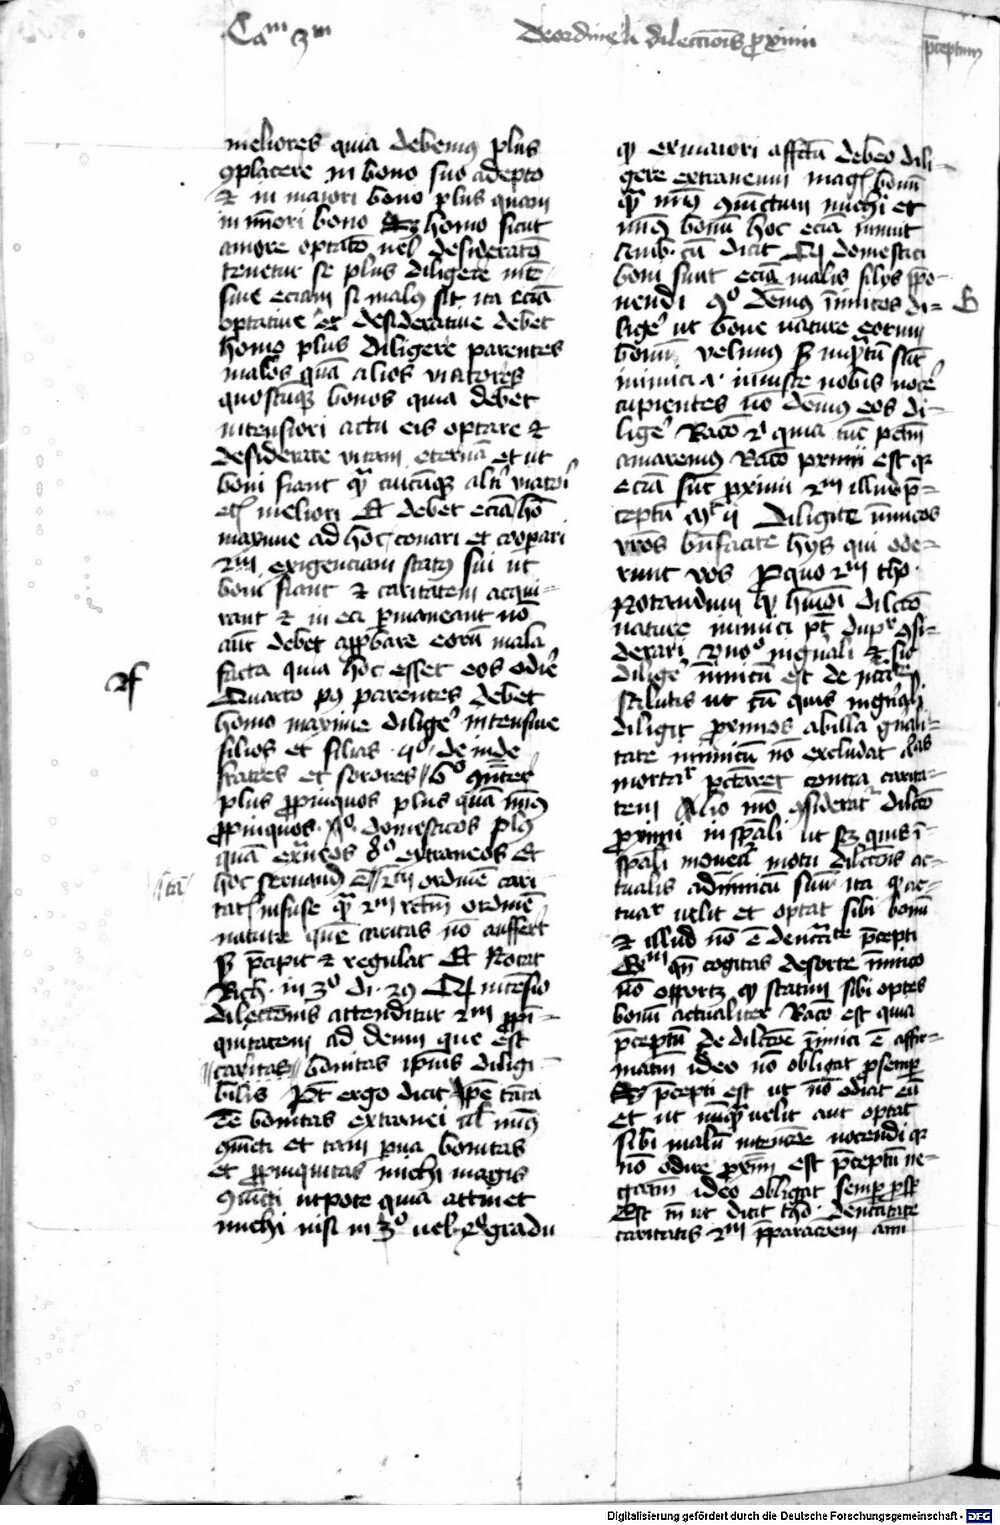 Cam 3m
De ordine dilectionis proximi
preceptum
meliores quia debemus plus
9placere in bono suo adepto
et in maiori bono plus quam
in minori bono homo sicut
amore optato uel desiderato
tenetur se plus diligere inten
siue eciam si malus sit ita eciam
optatiue et desideratiue debet
homo plus diligere parentes
malos quam alios viatores
quoscumque bonos quia debet
intensiori actu eis optare et
desiderare vitam eternam et ut
boni fiant quam cuicumque alteri viatori
meliori Et debet eciam homo
maxime ad hoc conari et cooperari
2m exigenciam status sui ut
boni fiant et caritatem acqui
rant et in ea permaneant non
autem debet approbare eorum mala
facta quia hoc esset eos odire
Quarto post parentes debet
homo maxime diligere intensiue
filios et filias 5o deinde
fratres et sorores 6o
plus propinquos plus quam minus
propinquos 7o domesticos plus
quam extraneos 8o extraneos Et
hoc seruandum est 2m ordinem cari
tatis infuse quam 2m rectum ordinem
nature quem caritas non auffert
sed precipit et regulat Et Notat
Rich in 3o di 29 Quod intensio
dilectionis attenditur 2m propin
quitatem ad deum que est
caritas bonitas ipsius diligi
bilis Potest ergo dicit esse tanta
bonitas extranei uel minus
coniuncti et tam parua bonitas
et propinquitas michi magis
coniuncti utpote quia attinet
michi nisi in 3o uel 4o gradu
quod ex maiori affectu debeo dili
gere extraneum magis bonum
quam minus coniunctum michi et
minus bonum hoc eciam innuit
cum dicit Quod domestici
boni sunt eciam malis filiis prepo
nendi 9o debemus inimicos di
B
ligere ut bone nature eorum
bonum velimus sed inquantum sunt
inimici a iniuste nobis nocere
cupientes non debemus eos di
ligere Racio est quia tunc peccatum
amaremus Racio primi est quia
eciam sunt proximi 2m illud pre
ceptum Mt ii Diligite inimicos
vestros benefacite hys qui ode
runt vos Pro quo 2m tho
Notandum quod huiusmodi dilectio
nature inimici potest dupliciter consi
derari vno modo in generali et sic
diligere inimicum est de necessitate
salutis ut cum quis in generali
diligit proximos ab illa generali
tate inimicum non excludat alias
mortaliter peccaret contra carita
tem Alio modo consideratur dilectio
proximi in speciali ut scilicet quis in
speciali moueatur motu dilectionis ac
tualis ad inimicum suum ita quod ac
tualiter uelit et optat sibi bonum
et illud non est de necessitate precepti
quando cogitas de sorte inimico
non oportet quod statim sibi optes
bonum actualiter Racio est quia
preceptum de dilectione inimici est affir
matiuum ideo non obligat pro semper
precepti est ut non odiat eum
et ut nunquam uelit aut optat
sibi malum intencione nocendi quia
non odire proximum est preceptum ne
gatiuum ideo obligat semper pro semper
Est tamen ut dicit tho de necessitate
caritatis 2m preparacionem animi
Digitalisierung gefördert durch die Deutsche Forschungsgemeinschaft - DFG